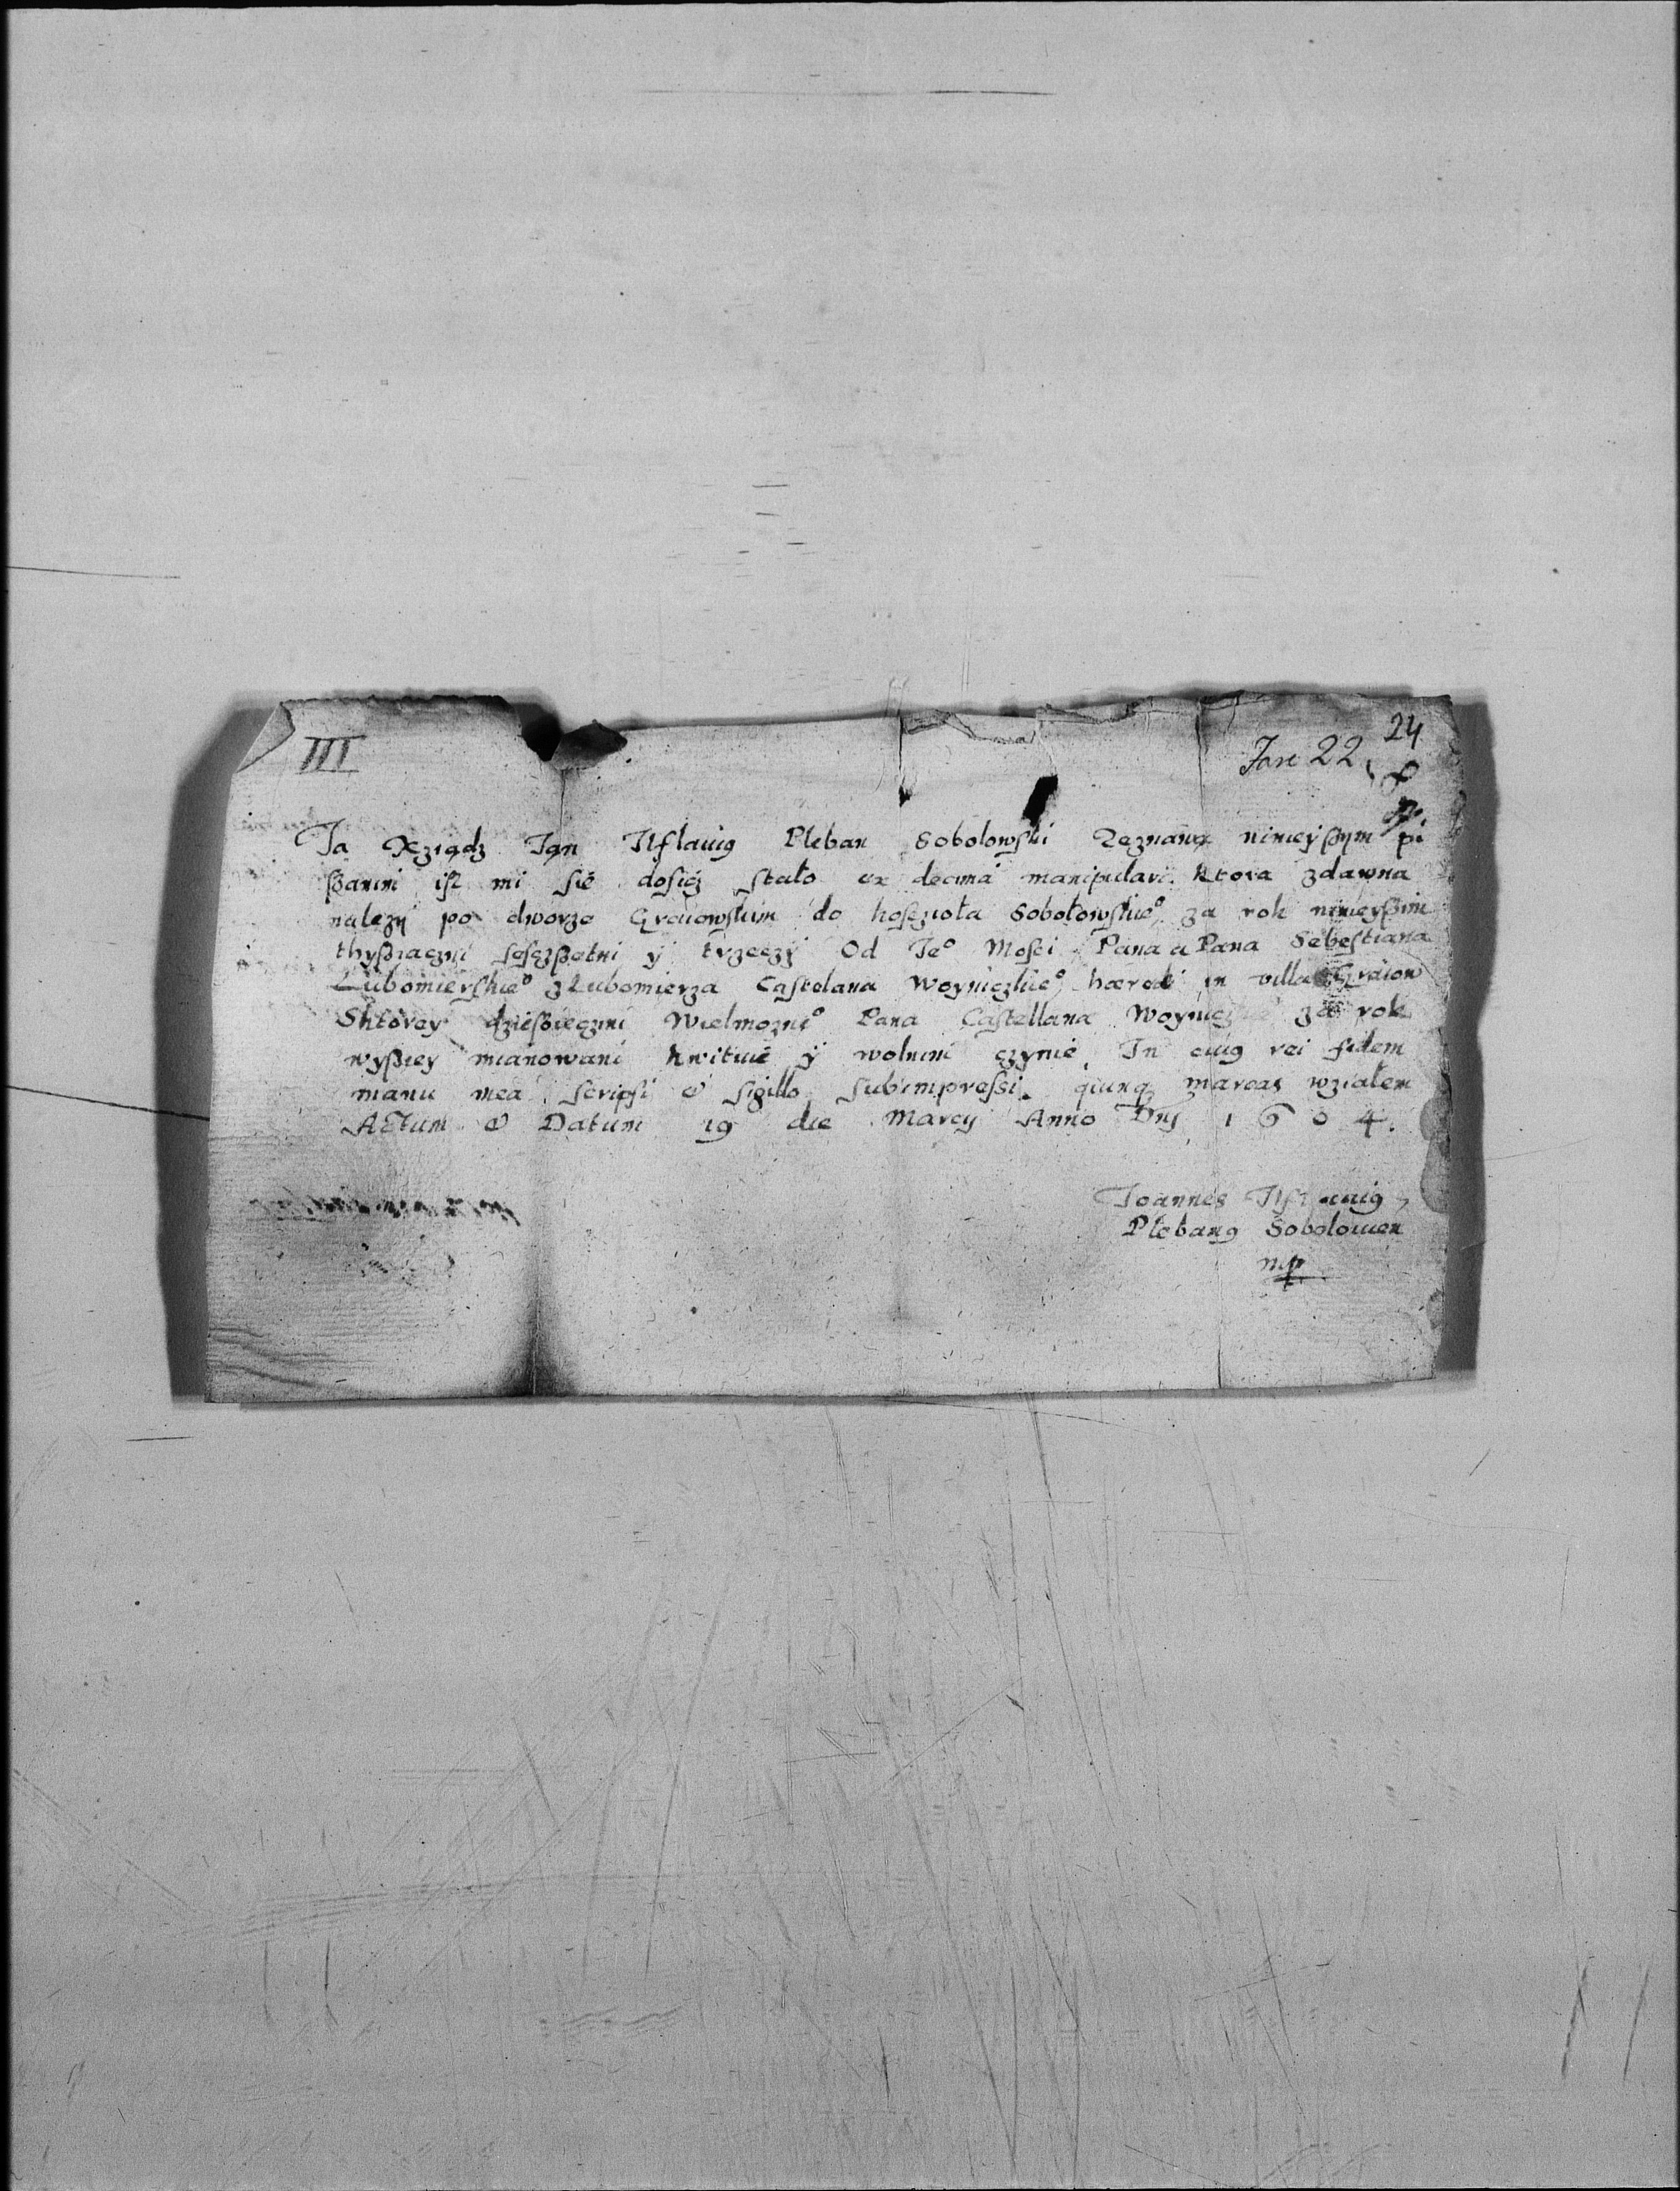 III
24
Fasc 22
Ja Xziądz Jan Ilſlauig Pleban Sobolowſki Zeznawą ninieyſßym pi
ſßanini iſz mi ſię doſicz ſtało ex decima manipulari. Ktora zdawna
nalezy po dworze Grauowſkim do koſcziola Sobolowſkieº, za rok ninieyſßim
thyſßiączni ſeſczſßetni ÿ trzeczÿ Od Jeº Moſci Pana a Pana Sebeſtiana
Lubomierſkieº z Lubomierza Caſtelana Woyniczkieº, hæredi in villa Graiow
Sktorey dzieſßięczini Wielmoznº Pana Caſtellana Woynicz za rok
wyſßey mianowani kwituię ÿ wolnini czynię. In cuig rei fidem
manu mea ſcripſi & ſigillo ſubimpreſsi. qiunq marcas wziałem
Actum & Datum 19 die Marcy Anno Dnj 1604.
Joannes
Plebang Sobolowien
mp